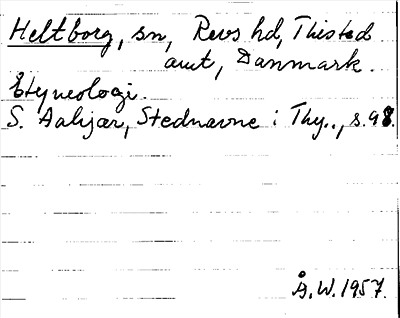 Heltborg, sn, Revs hd, Thisted
amt, Danmark.
Etymologi.
S. Aakjær, Stednavne i Thy.., s. 98.
Å. W. 1957.